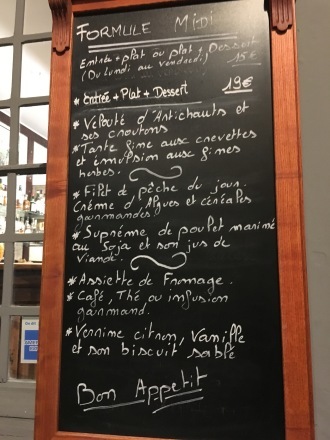 FORMULE MIDI
Entrée + plat ou plat + Dessert
(Du lundi au vendredi) 15€
* Entrée + Plat + Dessert 19€
* Velouté d'Antichauts et
ses croutons
* Tarte fine aux crevettes
et émulsion aux fines
herbes.
* Filet de pêche du jour
Crème d'Algues et céréales
gourmandes
* Suprême de poulet mariné
au Soja et son jus de
viande.
* Assiette de Fromage.
* Café, Thé ou infusion
gourmand.
* Verrine citron, Vanille
et son biscuit sablé
Bon Appetit